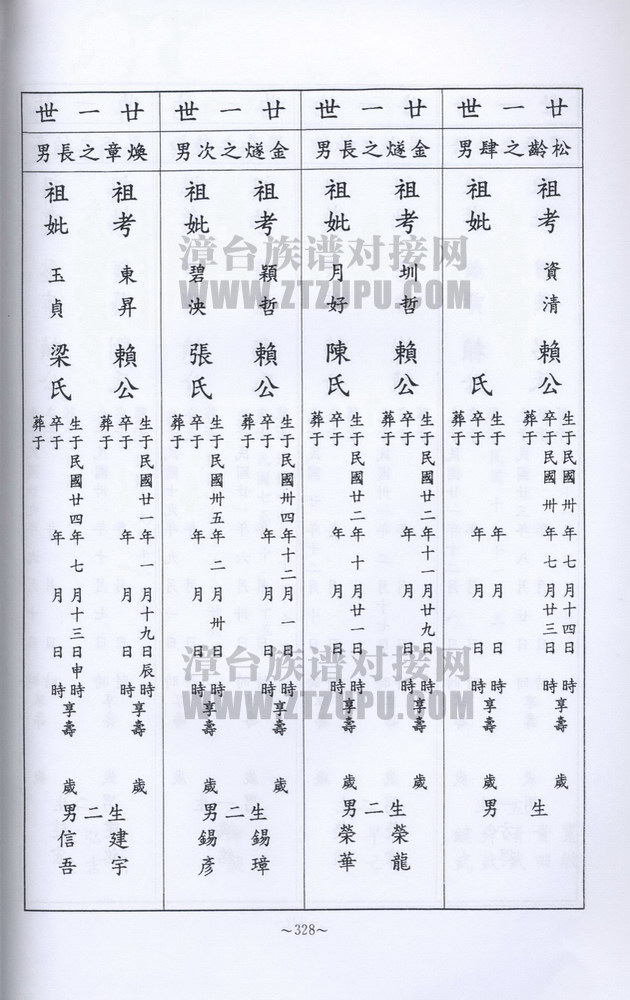 廿一世
松齡之肆男
祖考 資清 賴公
生于民國卅年七月十四日 時
卒于民國卅年七月廿三日 時享壽 歲
葬于
祖妣 氏
生于 年 月 日 時
卒于 年 月 日 時享壽 歲
葬于
生 男
廿一世
金燧之長男
祖考 圳哲 賴公
生于民國廿二年十一月廿九日 時
卒于 年 月 日 時享壽 歲
葬于
祖妣 月好 陳氏
生于民國廿二年十月廿一日 時
卒于 年 月 日 時享壽 歲
葬于
生二男
榮龍
榮華
廿一世
金燧之次男
祖考 穎哲 賴公
生于民國卅四年十二月一日 時
卒于 年 月 日 時享壽 歲
葬于
祖妣 碧泱 張氏
生于民國卅五年二月卅日 時
卒于 年 月 日 時享壽 歲
葬于
生二男
錫璋
錫彥
廿一世
煥章之長男
祖考 東昇 賴公
生于民國廿一年一月十九日辰時
卒于 年 月 日 時享壽 歲
葬于
祖妣 玉貞 梁氏
生于民國廿四年七月十三日申時
卒于 年 月 日 時享壽 歲
葬于
生二男
建宇
信吾
漳台族谱对接网
WWW.ZTZUPU.COM
漳台族谱对接网
WWW.ZTZUPU.COM
~328~